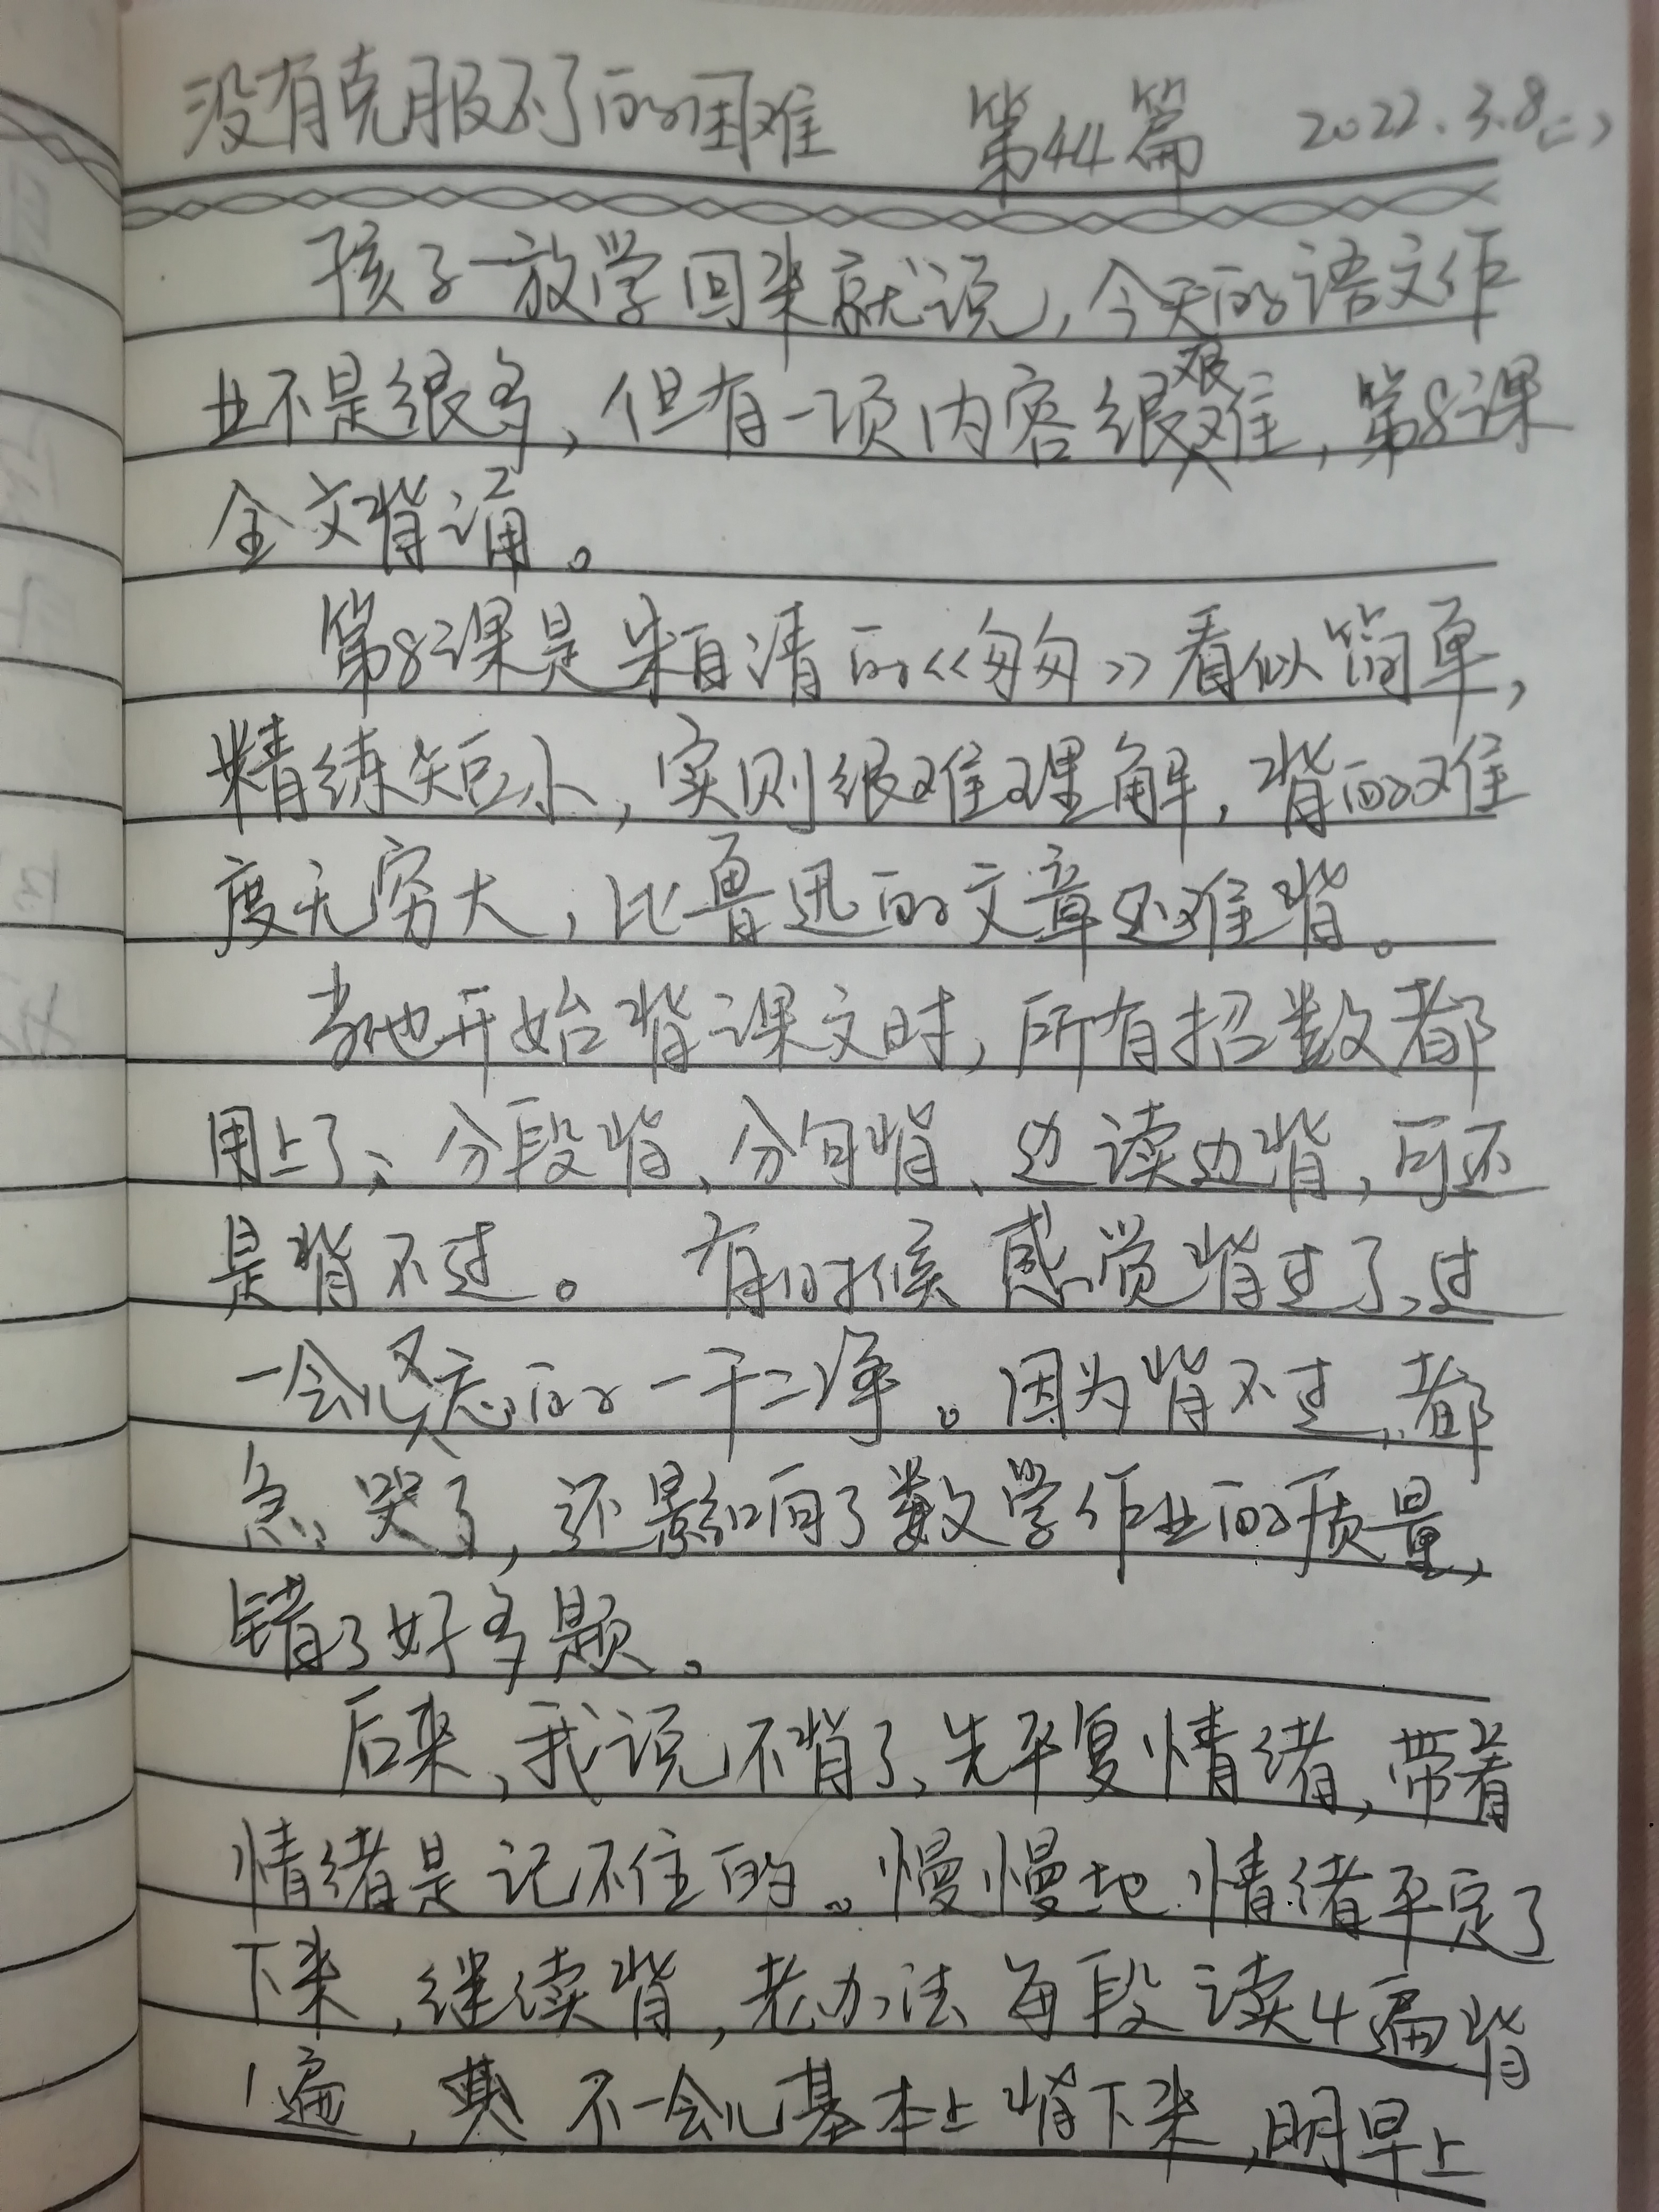 没有克服不了的困难 第44篇 2022.3.8(二)
孩子一放学回来就说,今天的语文作
业不是很多,但有一项内容很艰难,第8课
全文背诵。
第8课是朱自清的《匆匆》看似简单,
精练短小,实则很难理解,背的难
度无穷大,比鲁迅的文章还难背。
当他开始背课文时,所有招数都
用上了,分段背、分句背、边读边背,可还
是背不过。有时候感觉背过了,过
一会儿又忘的一干二净。因为背不过,都
急哭了,还影响了数学作业的质量,
错了好多题。
后来,我说不背了,先平复情绪,带着
情绪是记不住的。慢慢地情绪平定了
下来,继续背,老办法每段读4遍背
1遍,不一会儿基本上背下来,明早上